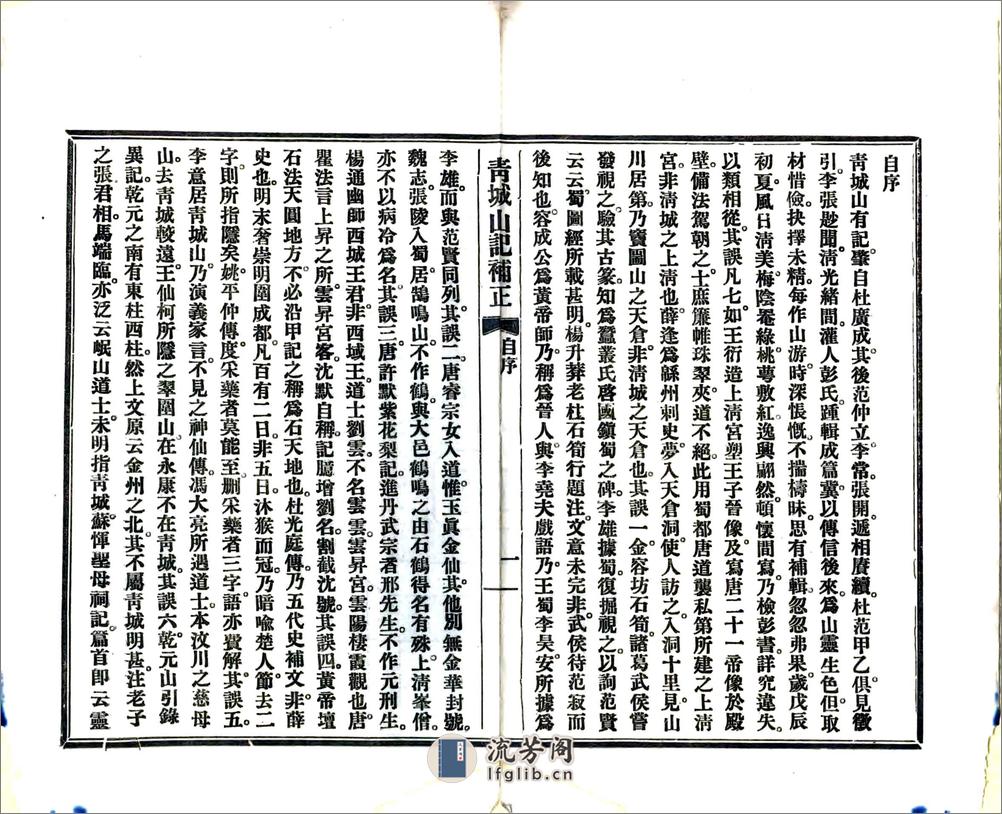 自序
靑城山有記肇自杜廣成其後范仲立李常張開遞相賡續杜范甲乙俱見徵
引李張尟聞淸光緖間灌人彭氏踵輯成篇冀以傳信後來爲山靈生色但取
材惜儉抉擇未精每作山游時深悵慨不揣檮昧思有補輯忽忽弗果歲戊辰
初夏風日淸美梅陰罨綠桃萼敷紅逸興翩然頓懷間寫乃檢彭書詳究違失
以類相從其誤凡七如王衍造上淸宮塑王子晉像及寫唐二十一帝像於殿
壁備法駕朝之士庶簾帷珠翠夾道不絕此用蜀都唐道襲私第所建之上淸
宮非淸城之上淸也薛逢爲緜州刺史夢入天倉洞使人訪之入洞十里見山
川居第乃竇圌山之天倉非淸城之天倉也其誤一金容坊石筍諸葛武侯嘗
發視之驗其古篆知爲蠶叢氏啓國鎭蜀之碑李雄據蜀復掘視之以詢范賢
云云蜀圖經所載甚明楊升菴老杜石筍行題注文意未完非武侯待范寂而
後知也容成公爲黃帝師乃稱爲晉人與李堯夫戲語乃王蜀李昊安所據爲
靑城山記補正
自序
一
李雄而與范賢同列其誤二唐睿宗女入道惟玉眞金仙其他別無金華封號
魏志張陵入蜀居鵠鳴山不作鶴與大邑鶴鳴之由石鶴得名有殊上淸峯僧
亦不以病冷爲名其誤三唐許默紫花梨記進丹武宗者邢先生不作元刑生
楊通幽師西城王君非西域王道士劉雲不名雲雲昇宮雲陽棲霞觀也唐
瞿法言上昇之所雲昇宮客沈默自稱記臆增劉名割截沈號其誤四黃帝壇
石法天圓地方不必沿甲記之稱爲石天地也杜光庭傳乃五代史補文非薛
史也明末奢崇明圍成都凡百有二日非五日沐猴而冠乃暗喩楚人節去二
字則所指隱矣姚平仲傳度采藥者莫能至删采藥者三字語亦費解其誤五
李意居靑城山乃演義家言不見之神仙傳馮大亮所遇道士本汶川之慈母
山去靑城較遠王仙柯所隱之翠圍山在永康不在靑城其誤六乾元山引錄
異記乾元之南有東柱西柱然上文原云金州之北其不屬靑城明甚注老子
之張君相馬端臨亦泛云岷山道士未明指靑城蘇惲聖母祠記篇首卽云靈
流芳阁
lfglib.cn